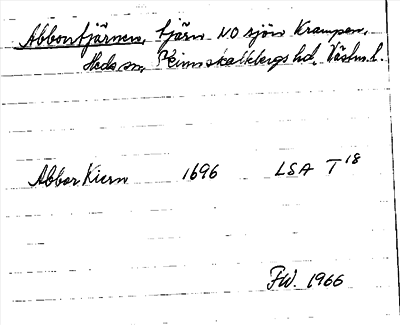 Abborrtjärnen, tjärn NO sjön Krampen,
Heds sn, Skinnskattebergs hd, Västm. l.
Abbor Kiern 1696 LSA T 18
FW. 1966